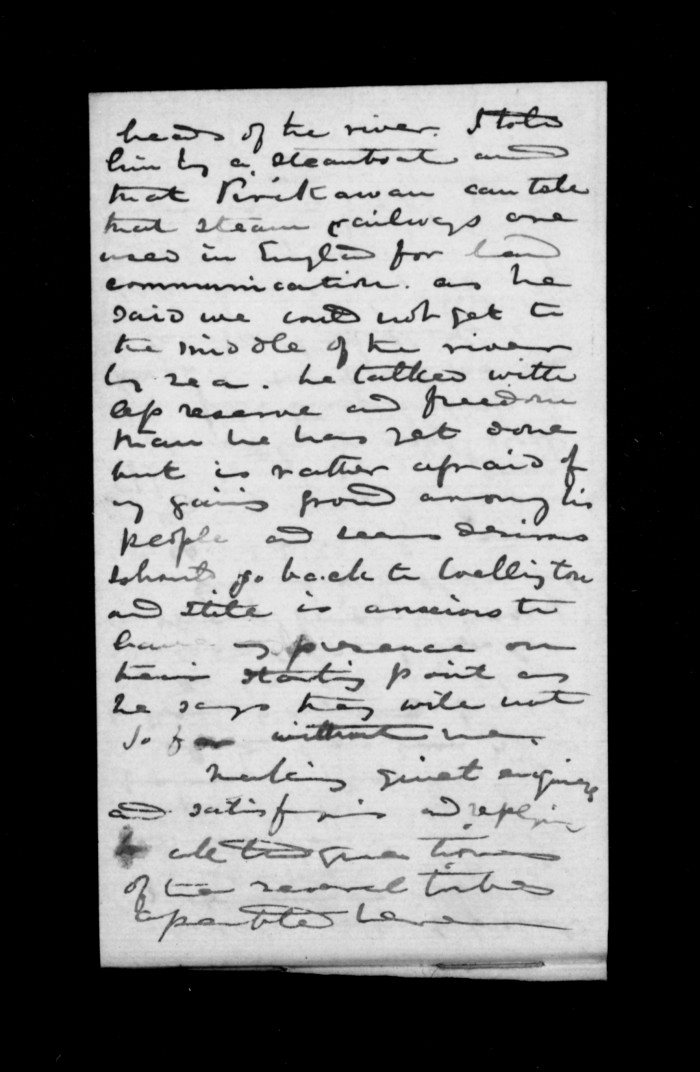 heads of the river. I told
him by a steamboat and
that Pirikawau can tell
that steam railways are
used in England for land
communication. as he
said we could not get to
the middle of the river
by sea. he talked with
less reserve and freedom
than he has yet done
but is rather afraid of
my gaining ground among his
people and seems desirous
I should go back to Wellington
and still is anxious to
have my presence on
their starting point as
he says they will not
go without me.
Making quiet enquiries
and satisfying and replying
to all the questions
of the several tribes
assembled here